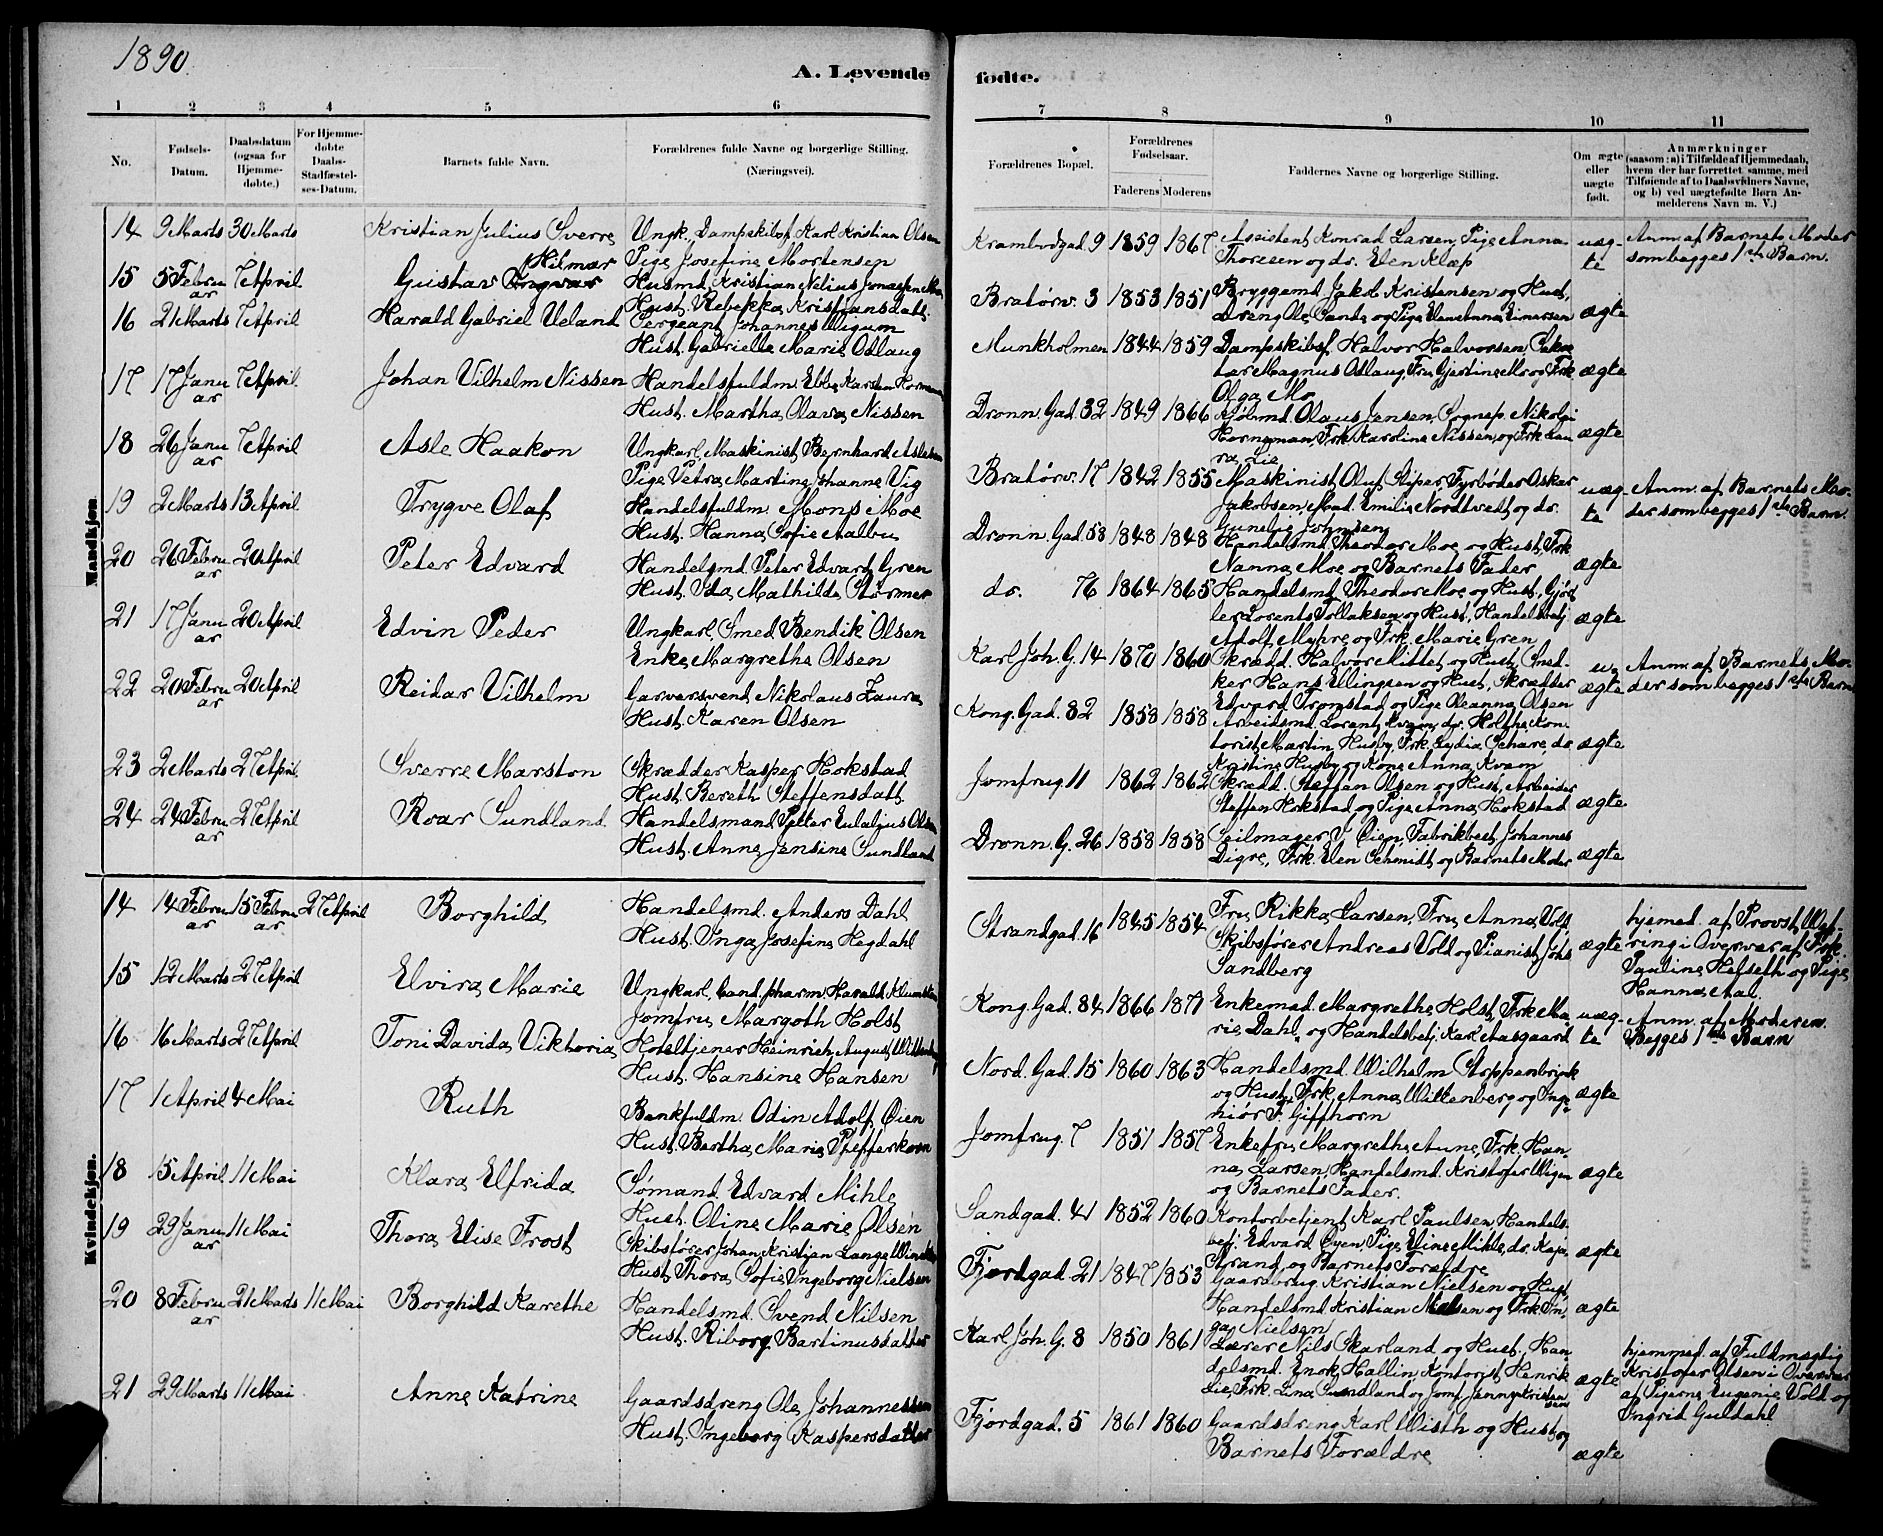 1890.
A. Levende fødte.
1 2 3 4 5 6 7 8 9 10 11
No.
Fødsels-
Datum.
Daabsdatum
(ogsaa for
Hjemme-
døbte.)
For Hjemme-
døbte
Daabs-
Stadfæstel-
ses-Datum.
Barnets fulde Navn.
Forældrenes fulde Navne og borgerlige Stilling.
(Næringsvei).
Forældrenes Bopæl.
Forældrenes
Fødselsaar.
Faderens Moderens
Faddernes Navne og borgerlige Stilling.
Om ægte
eller
uægte
født.
Anmærkninger
(saasom: a) i Tilfælde af Hjemmedaab,
hvem der har forrettet samme, med
Tilføiende af to Daabsvidners Navne,
og b) ved uægtefødte Børn An-
melderens Navn m. V.)
Mandkjøn
14 9 Marts 30 Marts Kristian Julius Sverre Ungk., Dampskibsf. Karl Kristian Olsen
Pige Josefine Mortensen
Krambodgad. 9 1859 1867 Assistent Konrad Larsen, Pige Anna
Thoresen og do. Elen Klæp
uæg-
te
Anm. af Barnets Moder
som begges 1ste Barn.
15 5 Febru
ar 7 April Gustav Hilmar Husmd. Kristian Nelius Jonassen
Hust. Rebekka Kristiansdatt.
Bratørv. 3 1853 1851 Bryggemd. Jakob Kristensen og Hust.,
Dreng Ole Sande og Pige Elen Anna Einarsen
ægte
16 21 Marts 7 April Harald Gabriel Ueland Sergeant Johannes Vigum
Hust. Gabrielle Marie Odlaug
Munkholmen 1844 1859 Dampskibsf. Halvor Halvorsen, Sekre
tær Magnus Odlaug, Fru Gjertine Mo og Frk
Olga Mo
ægte
17 17 Janu
ar 7 April Johan Vilhelm Nissen Handelsfuldm. Ebbe Karsten
Hust. Martha Olava Nissen
Dronn. Gad. 32 1849 1866 Kjøbmd. Olaus Jensen, Sognep. Nikolai
Horneman, Frk. Karoline Nissen, og Frk. Lau
ra Lie
ægte
18 26 Janu
ar 7 April Asle Haakon Ungkarl, Maskinist Bernhard Aslesen
Pige Petra Martine Johanne Vig
Bratørv. 17 1842 1855 Maskinist Oluf Piper, Fyrbøder Oskar
Jakobsen, Mad. Emilie Nordtvedt og do.
Gunelie Johnsen
uæg-
te
Anm. af Barnets Mo-
der som begges 1ste Barn.
19 2 Marts 13 April Trygve Olaf Handelsfuldm. Mons Moe
Hust. Hanna Sofie Aalbu
Dronn. Gad. 58 1848 1848 Handelsmd. Theodor Moe og Hust., Frk
Nanna Moe og Barnets Fader
ægte
20 26 Febru
ar 20 April Peter Edvard Handelsmd. Peter Edvard Gren
Hust. Ida Mathilde Størmer
do. 76 1864 1865 Handelsmd. Theodor Moe og Hust., Gjørt
ler Lorents Tollaksen og Hust., Handelsbetj.
Adolf Myhre og Frk. Marie Gren
ægte
21 17 Janu
ar 20 April Edvin Peder Ungkarl, Smed Bendik Olsen
Enke Margrethe Olsen
Karl Joh. G. 14 1870 1860 Skrædd. Halvor Kittet og Hust., Sned-
ker Hans Ellingsen og Hust., Skrædder
Edvard Tromstad og Pige Oleanna Olsen
u-
ægte
Anm. af Barnets Mo-
der som begges 1ste Barn
22 20 Febru
ar 20 April Reidar Vilhelm Garversvend Nikolaus Laura
Hust. Karen Olsen
Kong. Gad. 82 1858 1858 Arbeidsmd. Lorents Kvam, do. Holthe, Kon-
torist Martin Husby, Frk. Lydia Schare, do
Kristine Husby og Kone Anna Kvam
ægte
23 2 Marts 27 April Sverre Marston Skrædder Kasper Hokstad
Hust. Bereth Steffensdatt.
Jomfrug. 11 1862 1862 Skrædd. Steffan Olsen og Hust., Arbeider
Steffen Hokstad og Pige Anna Hokstad
ægte
24 24 Febru
ar 27 April Roar Sundland Handelsmand Petter Eulalgius Olsen
Hust. Anne Jensine Sundland
Dronn. G. 26 1858 1858 Seilmager J. Øien, Fabrikbest. Johannes
Digre, Frk. Elen Schmidt og Barnets Moder
ægte
Kvindekjøn.
14 14 Febru
ar 15 Febru
ar 27 April Borghild Handelsmd. Anders Dahl
Hust. Inga Josefine Hegdahl
Strandgad. 16 1845 1854 Fru Rikka Larsen, Fru Anna Vold,
Skibsfører Andreas Vold og Pianist Johs
Sandberg
ægte
hjemed. af Provst
ring i Overvær af Frk.
Pauline Helseth og Pige
Hanna Aal.
15 12 Marts 27 April Elvira Marie Ungkarl, Cand. pharm. Harald
Jomfru Margoth Holst
Kong. Gad. 84 1866 1871 Enkemad. Margrethe Holst, Frk Ma
rie Dahl, og Handelsbetj. Karl Aasgaard
uæg-
te
Anm. af Moderen.
Begges 1ste Barn
16 16 Marts 27 April Toni Davida Viktoria Hoteltjener Heinrich August Wittenberg
Hust. Hansine Hansen
Nord. Gad. 15 1860 1863 Handelsmd. Wilhelm Stoppenbrink
og Hust., Frk. Anna Wittenberg og Inge
niør F. Giffhorn
ægte
17 1 April 4 Mai Ruth Bankfuldm. Odin Adolf Øien
Hust. Bertha Marie Pfefferkorn
Jomfrug. 7 1851 1857 Enkefru Margrethe Aune, Frk. Han-
na Larsen, Handelsmd. Kristofer Wigen
og Barnets Fader.
ægte
18 15 April 11 Mai Klara Elfrida Sømand Edvard Mihle
Hust. Oline Marie Olsen
Sandgad. 41 1852 1860 Kontorbetjent Karl Paulsen, Handels-
betj. Edvard Øyen, Pige Eline Mikle, do. Kaja
Strand, og Barnets Forældre
ægte
19 29 Janu
ar 11 Mai Thora Elise Frost Skibsfører Johan Kristian Lange
Hust. Thora Sofie Ingeborg Nielsen
Fjordgad. 21 1847 1853 Gaardbrug. Kristian Nielsen og Hust.
Handelsmd. Kristian Nielsen og Frk. In-
ga Nielsen
ægte
20 8 Febru
ar 21 Marts 11 Mai Borghild Karethe Handelsmd. Svend Nilsen
Hust. Riborg Bartinusdatter
Karl Joh. G. 8 1850 1861 Lærer Nils Skarland og Hust., Han
delsmd. Enok Hallin, Kontorist Henrik
Lie, Frk. Lina Sundland og Jomf. Jenny Kristen
sen
ægte
hjemmed. af Fuldmægtig
Kristofer Olsen i Overvær
af Pigerne Eugenie Vold og
Ingrid Guldahl.
21 29 Marts 11 Mai Anne Katrine Gaardsdreng Ole Johannessen
Hust. Ingeborg Kaspersdatter
Fjordgad. 5 1861 1860 Gaardsdreng Karl Wisth og Hust. og
Barnets Forældre
ægte